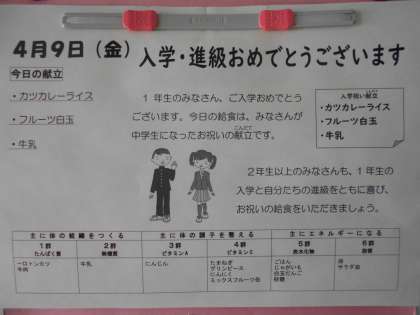 4月9日(金) 入学・進級おめでとうございます
今日の献立
・カツカレーライス
・フルーツ白玉
・牛乳
1年生のみなさん、ご入学おめでとう
ございます。今日の給食は、みなさんが
中学生になったお祝いの献立です。
こんだて
入学祝い献立
・カツカレーライス
・フルーツ白玉
・牛乳
2年生以上のみなさんも、1年生の
入学と自分たちの進級をともに喜び、
お祝いの給食をいただきましょう。
主に体の組織をつくる 主に体の調子を整える 主にエネルギーになる
1群 2群 3群 4群 5群 6群
たんぱく質 無機質 ビタミンA ビタミンC 炭水化物 脂質
牛乳
にんじん
たまねぎ
グリンピース
にんにく
ミックスフルーツ缶
ごはん
じゃがいも
白玉だんご
砂糖
サラダ油